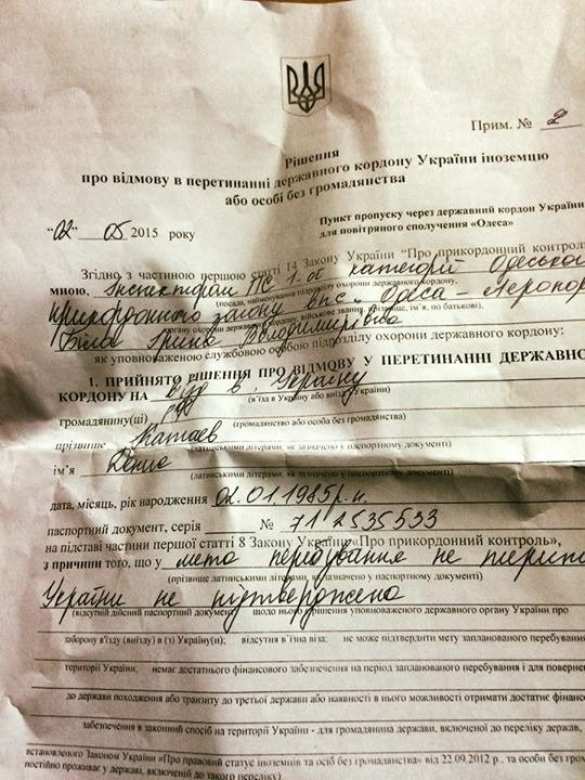 Прим. № 2
Рішення
про відмову в перетинанні державного кордону України іноземцю
або особі без громадянства
"02" 05 2015 року
Пункт пропуску через державний кордон України
для повітряного сполучення «Одеса»
Згідно з частиною першою статті 14 Закону України "Про прикордонний контроль
мною, Інспектором ПС 1 ої категорії Одеської
(посада, найменування підрозділу охорони державного кордону,
прикордонного загону впс. Одеса - Аеропор
органу охорони державного кордону, військове звання, прізвище, ім'я, по батькові)
Біла Ірина Володимирівна
як уповноваженою службовою особою підрозділу охорони державного кордону:
1. ПРИЙНЯТО РІШЕННЯ ПРО ВІДМОВУ У ПЕРЕТИНАННІ ДЕРЖАВНО
КОРДОНУ НА в'їзд в Україну
(в'їзд в Україну або виїзд з України)
громадянину(ці) РФ
(громадянство або особа без громадянства)
прізвище Катаев
(латинськими літерами, як зазначено у паспортному документі)
ім'я Денис
(латинськими літерами, як зазначено у паспортному документі)
дата, місяць, рік народження 02.01.1985 р.н.
паспортний документ, серія № 71 2535533
на підставі частини першої статті 8 Закону України «Про прикордонний контроль»,
з причини того, що у мета перебування на територ
(прізвище латинськими літерами, як зазначено у паспортному документі)
України не підтверджено
(відсутній дійсний паспортний документ; щодо нього рішення уповноваженого державного органу України про
заборону в'їзду (виїзду) в (з) Україну(и); відсутня в`їзна віза; не може підтвердити мету запланованого перебування
території України; немає достатнього фінансового забезпечення на період запланованого перебування і для поверне
до держави походження або транзиту до третьої держави або наявності в нього можливості отримати достатнє фінансов
забезпечення в законний спосіб на території України - для громадянина держави, включеної до переліку держав,
встановленого Законом України «Про правовий статус іноземців та осіб без громадянства» від 22.09.2012 р., та особи без гром
постійно проживає у державі, включеній до такого переліку)